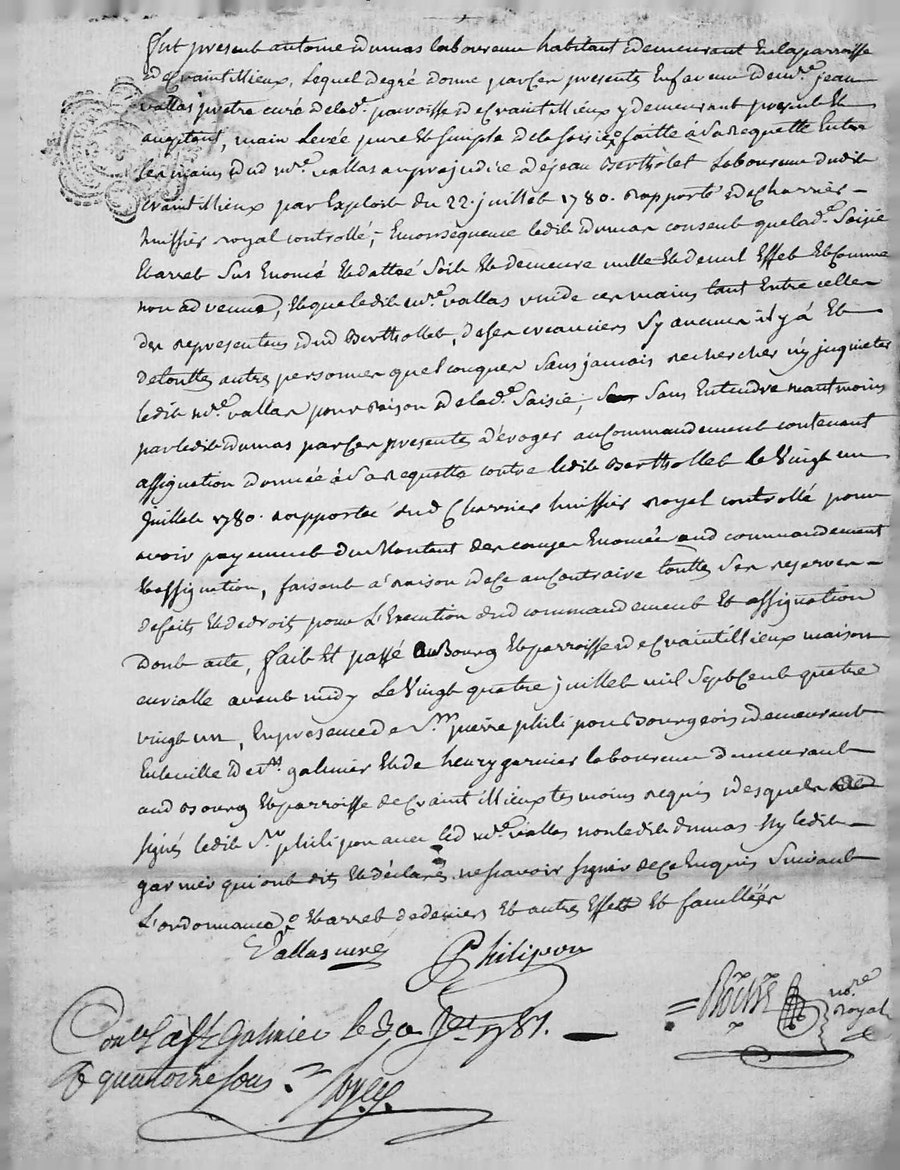 fut present antoine dumas laboureur habitant demeurant En la parroisse
de Craintillieux, Lequel de gré donne par Ces presentes En faveur de mre. jean
vallas pretre curé de lad. parroisse de Craintillieux y demeurant present Et
aceptant, main Levée pure Et simple de la Saisie faitte à Sa requette Entre
les mains dud mre. vallas au prejudice de jean Bertholet Laboureur dudit
Craintillieux par Exploit du 22. juillet 1780. rapporté de Charrier
huissier royal controllé; En consequence ledit dumas consent que lad. Saisie
Et arret Sus Enoncé Et dattée Soit Et demeure nulle Et de nul Effet Et Comme
non advenue, Et que ledit mre. vallas vuide ces mains tant Entre celles
des representens dud Berthollet, de ses creanciers Sy aucuns il y à Et
de touttes autres personnes quelconques Sans jamais rechercher ny inquieter
ledit mre. vallas pour raison de lad. Saisie, Sans Entendre neantmoins
par ledit dumas par Ces presentes déroger au Commandement contenant
assignation donnée à Sa requette contre ledit Berthollet le Vingt un
juillet 1780. rapportée dud Charrier huissier royal controllé pour
avoir payement du Montant des causes Enoncées aud commandement
Et assignation, faisant à raison de Ce au Contraire touttes Ses reserves
de faits Et de droits pour L'Execution dud commandement Et assignation
dont acte, fait Et passé au Bourg Et parroisse de Craintillieux maison
curialle avant midy Le Vingt quatre juillet mil Sept Cent quatre
vingt un, En presence de Sr. pierre philipon Bourgeois demeurant
En la ville de St. galmier Et de henry garnier laboureur demeurant
aud Bourg Et parroisse de Craintillieux temoins requis desquels
signé ledit Sr. philipon avec led mre. vallas non ledit dumas Ny ledit
garnier qui ont dits Et déclarés ne scavoir signer de Ce Enquis Suivant
L'ordonnance Et arret de deniers Et autres Effets Et facultées
Vallas curé Philipon
nore. royal
Conlé à St Galmier le 30 Jet 1781.
R quatorze sous.